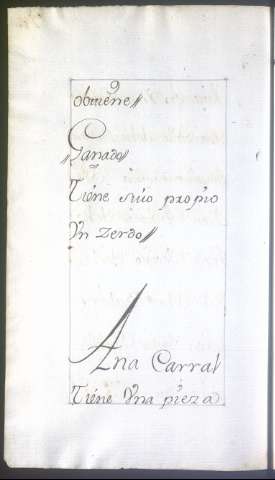 obtiene//
//Ganado//
Tiene suio propio
Vn zerdo//
Ana Carral
Tiene Vna pieza